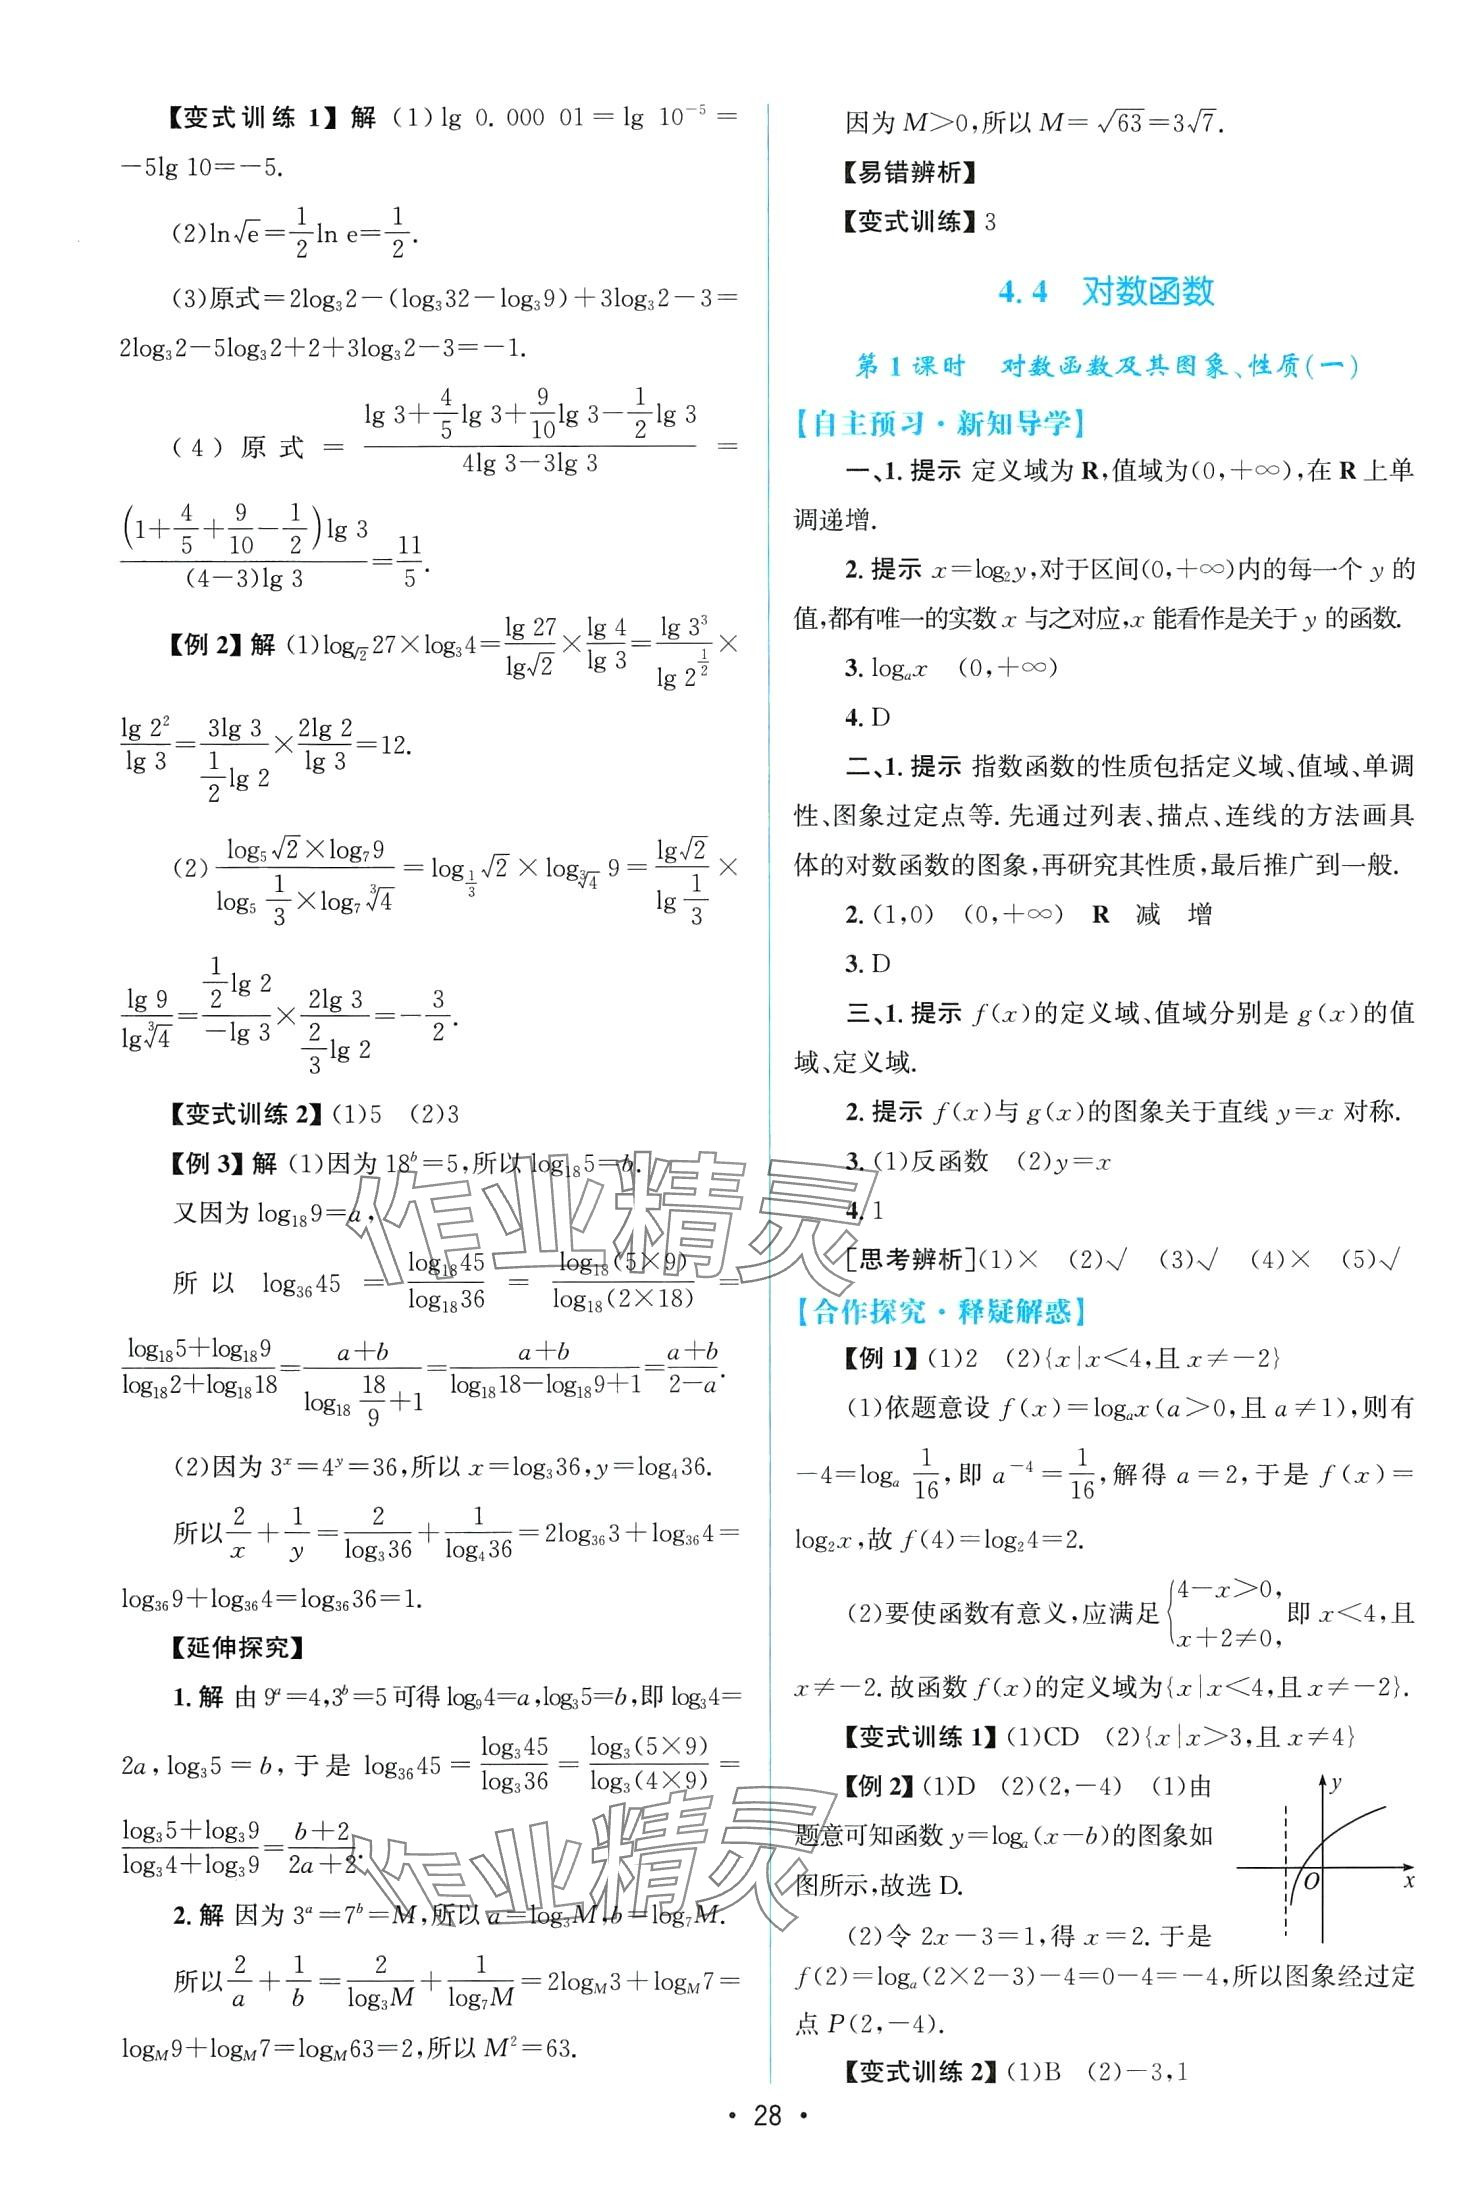 【变式训练1】解 (1)lg 0.000 01=lg 10⁻⁵=
-5lg 10=-5.
(2)ln√e=1/2 ln e=1/2.
(3)原式=2log₃2-(log₃32-log₃9)+3log₃2-3=
2log₃2-5log₃2+2+3log₃2-3=-1.
(4)原式=(lg 3+4/5 lg 3+9/10 lg 3-1/2 lg 3)/(4lg 3-3lg 3)=
(1+4/5+9/10-1/2)lg 3/((4-3)lg 3)=11/5.
【例2】解 (1)log_√2 27×log₃4=lg 27/lg√2×lg 4/lg 3=lg 3³/lg 2^(1/2)×
lg 2²/lg 3=3lg 3/(1/2 lg 2)×2lg 2/lg 3=12.
(2)(log₅√2×log₇9)/(log₅ 1/3×log₇∛4)=log_(1/3)√2×log_∛4 9=lg√2/lg 1/3×
lg 9/lg∛4=(1/2 lg 2)/(-lg 3)×2lg 3/(2/3 lg 2)=-3/2.
【变式训练2】(1)5 (2)3
【例3】解 (1)因为18ᵇ=5,所以log₁₈5=b.
又因为log₁₈9=a,
所以log₃₆45=log₁₈45/log₁₈36=log₁₈(5×9)/log₁₈(2×18)=
(log₁₈5+log₁₈9)/(log₁₈2+log₁₈18)=(a+b)/(log₁₈ 18/9+1)=(a+b)/(log₁₈18-log₁₈9+1)=(a+b)/(2-a).
(2)因为3ˣ=4ʸ=36,所以x=log₃36,y=log₄36.
所以2/x+1/y=2/log₃36+1/log₄36=2log₃₆3+log₃₆4=
log₃₆9+log₃₆4=log₃₆36=1.
【延伸探究】
1.解 由9ᵃ=4,3ᵇ=5可得log₉4=a,log₃5=b,即log₃4=
2a,log₃5=b,于是log₃₆45=log₃45/log₃36=log₃(5×9)/log₃(4×9)=
(log₃5+log₃9)/(log₃4+log₃9)=(b+2)/(2a+2).
2.解 因为3ᵃ=7ᵇ=M,所以a=log₃M,b=log₇M.
所以2/a+1/b=2/log₃M+1/log₇M=2log_M3+log_M7=
log_M9+log_M7=log_M63=2,所以M²=63.
因为M>0,所以M=√63=3√7.
【易错辨析】
【变式训练】3
4.4 对数函数
第1课时 对数函数及其图象、性质(一)
【自主预习·新知导学】
一、1.提示 定义域为R,值域为(0,+∞),在R上单
调递增.
2.提示 x=log₂y,对于区间(0,+∞)内的每一个y的
值,都有唯一的实数x与之对应,x能看作是关于y的函数.
3.logₐx (0,+∞)
4.D
二、1.提示 指数函数的性质包括定义域、值域、单调
性、图象过定点等.先通过列表、描点、连线的方法画具
体的对数函数的图象,再研究其性质,最后推广到一般.
2.(1,0) (0,+∞) R 减 增
3.D
三、1.提示 f(x)的定义域、值域分别是g(x)的值
域、定义域.
2.提示 f(x)与g(x)的图象关于直线y=x对称.
3.(1)反函数 (2)y=x
4.1
[思考辨析](1)× (2)√ (3)√ (4)× (5)√
【合作探究·释疑解惑】
【例1】(1)2 (2){x|x<4,且x≠-2}
(1)依题意设f(x)=logₐx(a>0,且a≠1),则有
-4=logₐ 1/16,即a⁻⁴=1/16,解得a=2,于是f(x)=
log₂x,故f(4)=log₂4=2.
(2)要使函数有意义,应满足{4-x>0, x+2≠0,即x<4,且
x≠-2.故函数f(x)的定义域为{x|x<4,且x≠-2}.
【变式训练1】(1)CD (2){x|x>3,且x≠4}
【例2】(1)D (2)(2,-4) (1)由
题意可知函数y=logₐ(x-b)的图象如
图所示,故选D.
y
O
x
(2)令2x-3=1,得x=2.于是
f(2)=logₐ(2×2-3)-4=0-4=-4,所以图象经过定
点P(2,-4).
【变式训练2】(1)B (2)-3,1
·28·
作业精灵
作业精灵